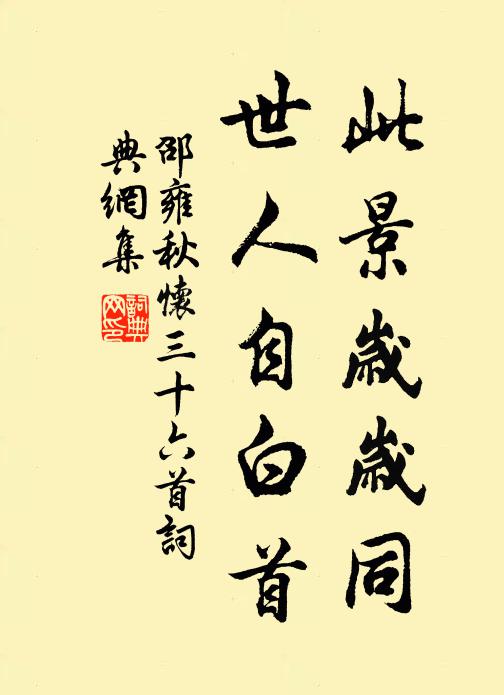 此景歲歲同
世人自白首
邵雍秋懷三十六首詞
典網集
詞典
网印